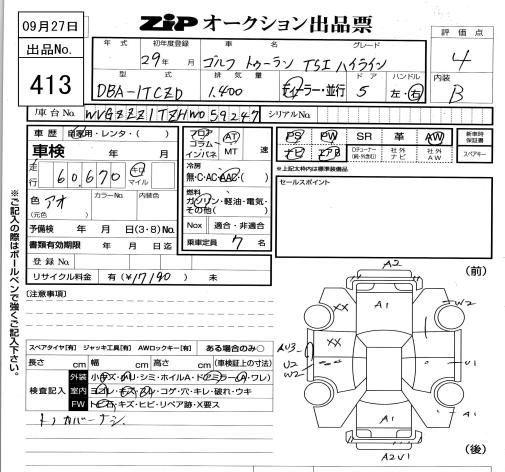 09月27日
出品No.
413
ZIP オークション出品票
評価点
4
内装
B
年式 初年度登録 車名 グレード
29年 月 ゴルフ トゥーラン TSI ハイライン
型式 排気量 ディーラー・並行 ドア ハンドル
DBA-1TCZD 1.400 5 左・右
車台No. WVGZZZ1TZHW059247 シリアルNo.
車歴 自家用・レンタ・( )
車検 年 月
走行 60,670 キロ マイル
色 アオ カラーNo. 内装色
(元色)
予備検 年 月 日(3・8)No.
書類有効期限 年 月 日迄
登録No.
リサイクル料金 有(¥17190)
フロア コラム インパネ AT MT 速
冷房
無・C・AC・AAC
燃料
ガソリン・軽油・電気・その他( )
Nox 適合・非適合
乗車定員 7 名
PS PW SR 革 AW 新車時保証書
ナビ エアB Dチューナー(純・外含む) 社外ナビ 社外AW スペアキー
※上記太枠内は標準装備品
セールスポイント
※ご記入の際はボールペンで強くご記入下さい。
(注意事項)
スペアタイヤ[有] ジャッキ工具[有] AWロックキー[有] ある場合のみ○
長さ cm 幅 cm 高さ cm (車検証上の寸法)
検査記入
外装 小キズ・ハリ・シミ・ホイルA・ドアミラー( ワレ)
室内 ヨゴレ・キズ・スレ・コゲ・穴・キレ・破れ・ウキ
FW トビ石・キズ・ヒビ・リペア跡・X要ス
トノカバーナシ
(前)
A2
A1
XX
W2
XX
AU3
U2
W2
U1
A1
A1
A2U1
(後)